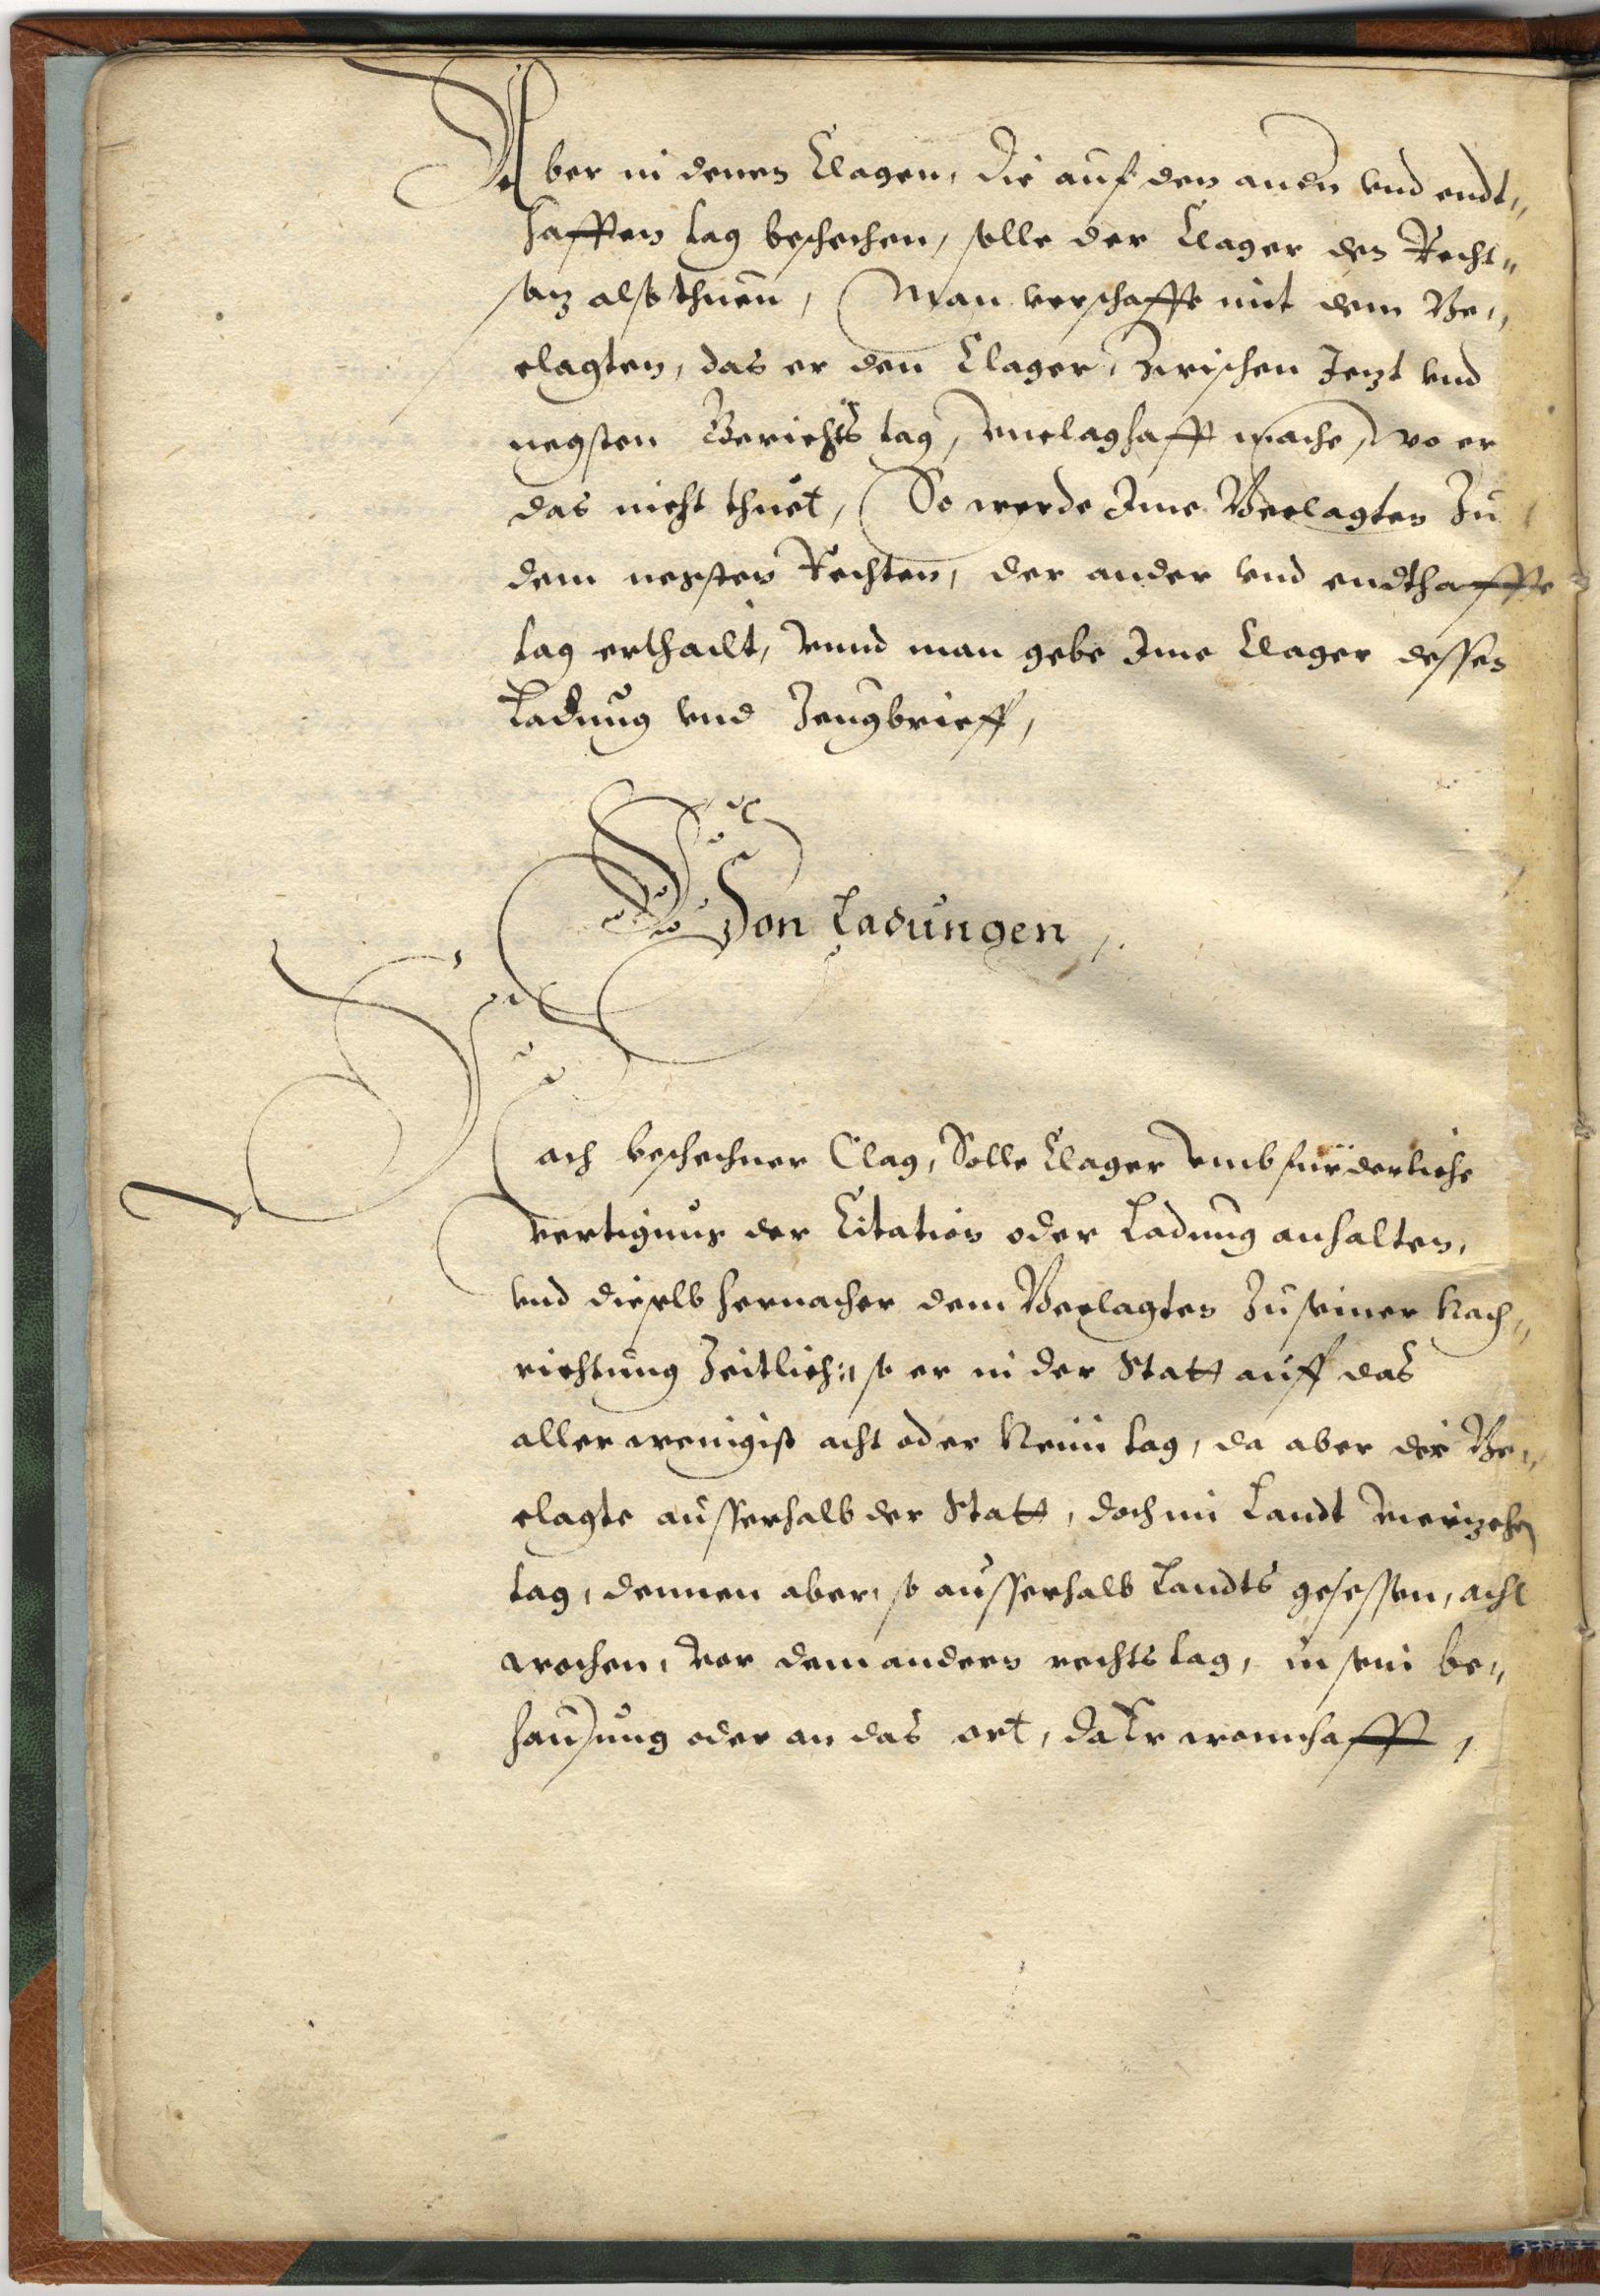 Aber in denen Clagen, die auf den andn vnd endt„
hafften tag beschechen, solle der Clager den Recht„
saz also thuen, Man verschaffe mit dem Be„
clagten, das er den Clager, Zwischen Jezt vnd
negsten Gerichts tag, vnclaghafft mache, wo er
das nicht thuet, So werde Ime Beclagten Zu
dem nechsten Rechten, der ander vnd endthaffte
tag erthailt, vnnd man gebe Ime Clager dessen
Ladung vnd Zeugbrieff,
Von Ladungen,
Nach beschechner Clag, Solle Clager vmb fürderliche
vertigung der Citation oder Ladung anhalten,
vnd dieselb hernacher dem Beclagten Zu seiner Nach„
richtung Zeitlich: so er in der Statt auff das
aller wenigist acht oder Neün tag, da aber der Be„
clagte ausserhalb der Statt, doch im Landt vierzehen
tag, dennen aber, so ausserhalb Landts gesessen, acht
wochen, vor dem andern rechts tag, in sein be„
hausung oder an das ort, da Er wonnhafft,